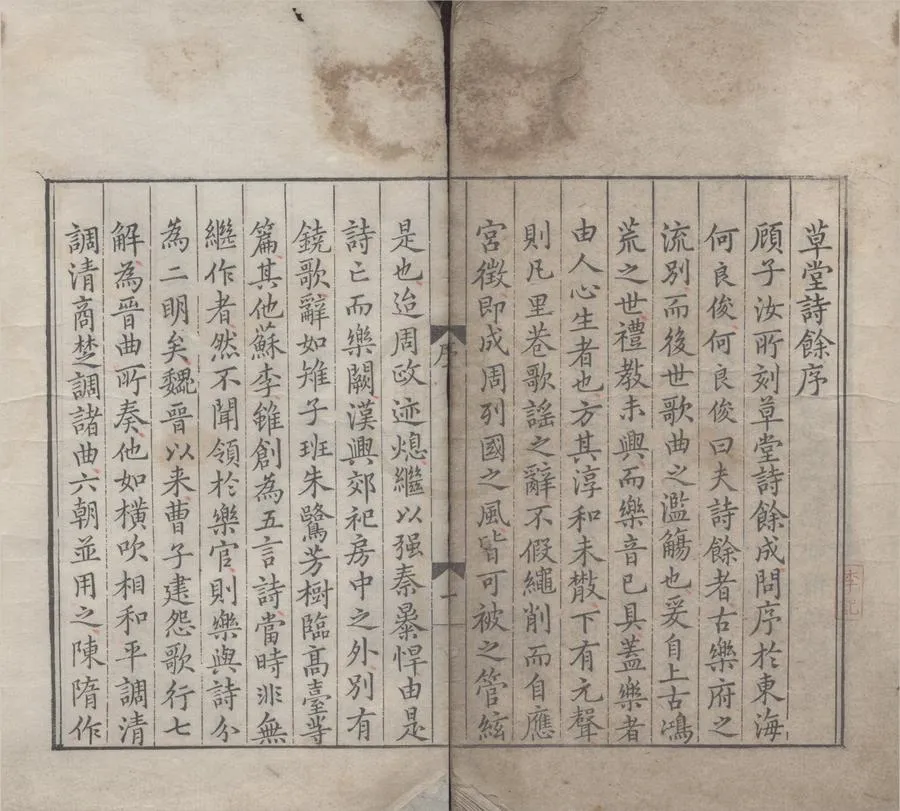 草堂詩餘序
顧子汝所刻草堂詩餘成問序於東海
何良俊何良俊曰夫詩餘者古樂府之
流別而後世歌曲之濫觴也爰自上古鴻
荒之世禮教未興而樂音已具蓋樂者
由人心生者也方其淳和未散下有元聲
則凡里巷歌謠之辭不假繩削而自應
宮徵即成周列國之風皆可被之管絃
序
一
是也迨周政迹熄繼以强秦暴悍由是
詩亡而樂闕漢興郊祀房中之外別有
鐃歌辭如雉子班朱鷺芳樹臨高臺等
篇其他蘇李雖創為五言詩當時非無
繼作者然不聞領於樂官則樂與詩分
為二明矣魏晉以来曹子建怨歌行七
解為晉曲所奏他如橫吹相和平調清
調清商楚調諸曲六朝並用之陳隋作